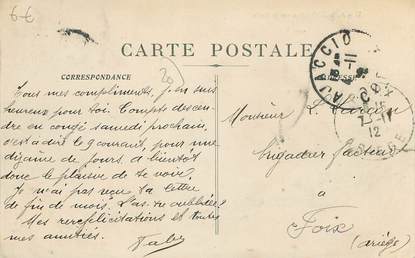 6€
CARTE POSTALE
CORRESPONDANCE
20
AJACCIO
Tous mes compliments. J'en suis
heureux pour toi. Compte descen-
dre en congé samedi prochain,
c'est à dire le 9 courant, pour une
dizaine de jours. à bientôt
donc le plaisir de te voir.
Je n'ai pas reçu ta lettre
de fin de mois. L'as-tu oubliée?
Mes refélicitations et toutes
mes amitiés.
Monsieur L.
brigadier facteur
à
Foix
(ariège)
FOIX
12
ARIEGE